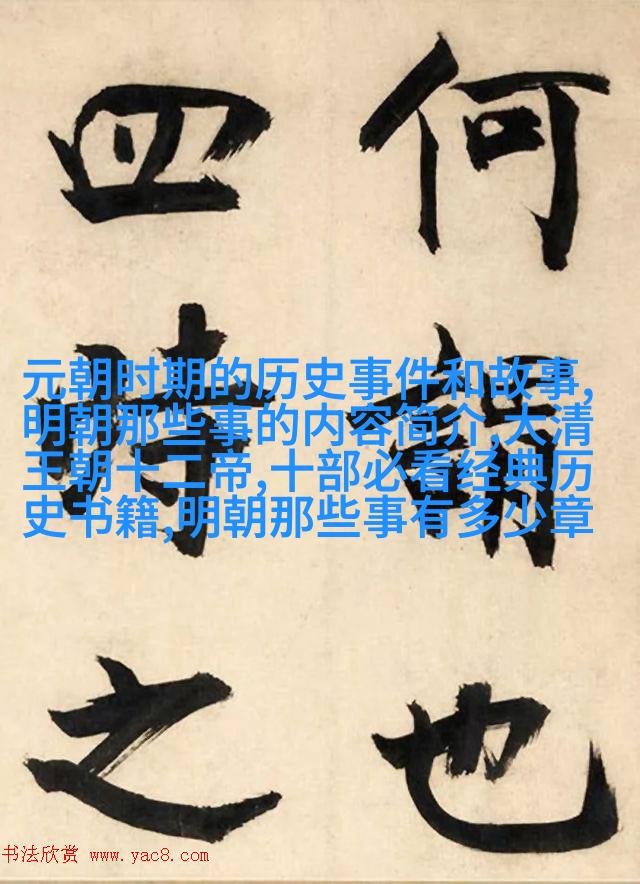 何謂也
四時之
元朝时期的历史事件和故事,
明朝那些事的内容简介,大清
王朝十二帝,十部必看经典历
史书籍,明朝那些事有多少章
书法欣赏 www.yac8.com